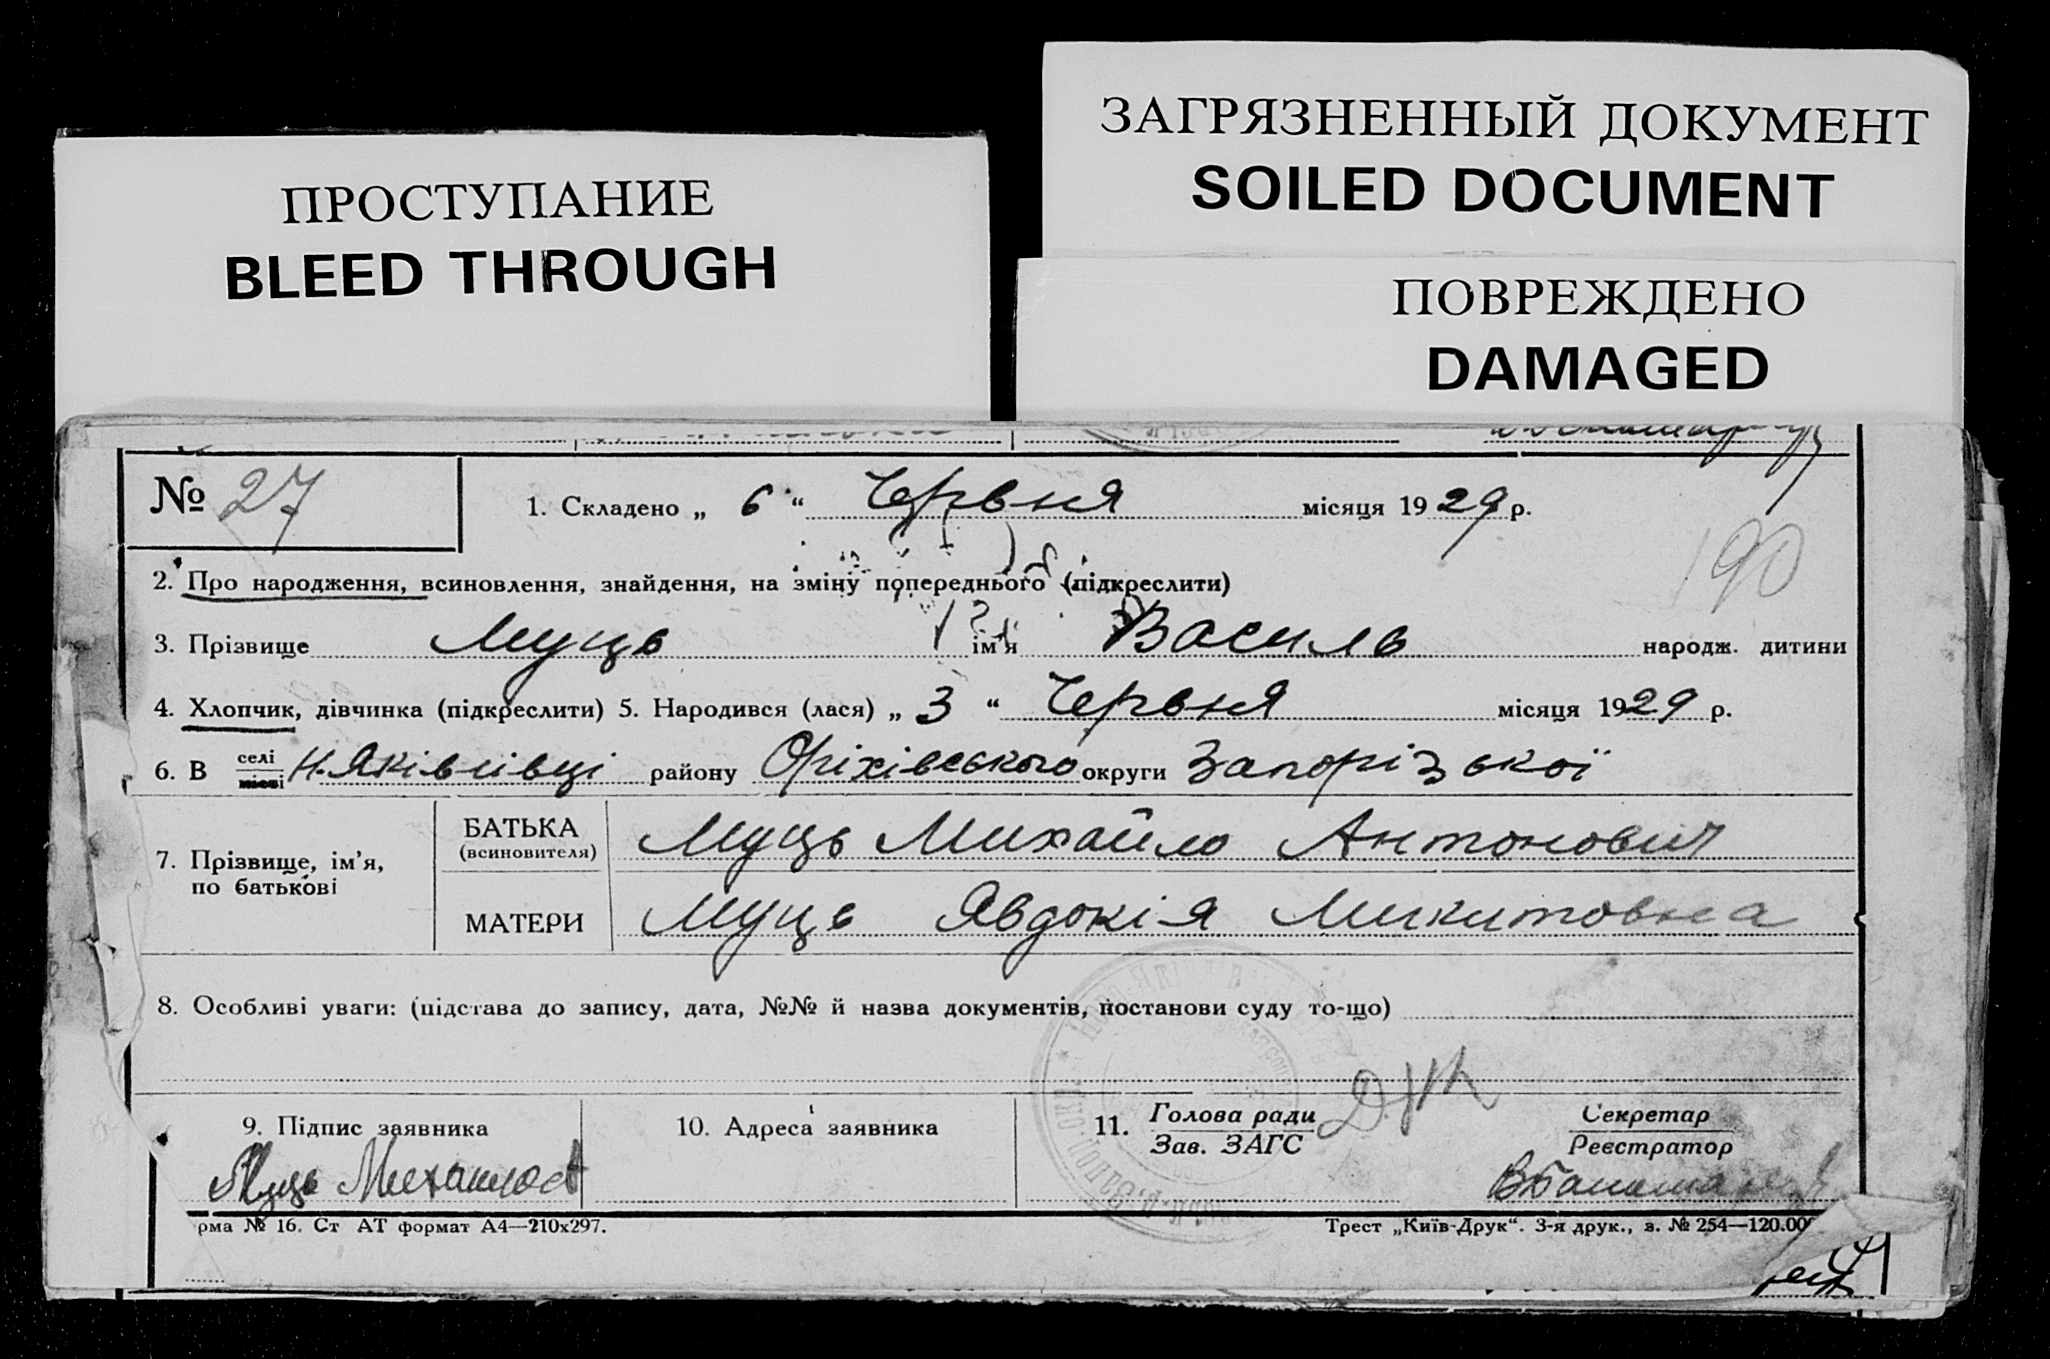 ЗАГРЯЗНЕННЫЙ ДОКУМЕНТ
SOILED DOCUMENT
ПРОСТУПАНИЕ
BLEED THROUGH
ПОВРЕЖДЕНО
DAMAGED
№ 27
1. Складено „ 6 “ Червня місяця 1929 р.
190
2. Про народження, всиновлення, знайдення, на зміну попереднього (підкреслити)
3. Прізвище Муць ім'я Василь народж. дитини
4. Хлопчик, дівчинка (підкреслити) 5. Народився (лася) „ 3 “ Червня місяця 1929 р.
6. В селі місті Н. Яківлівці району Оріхівського округи Запорізької
7. Прізвище, ім'я, по батькові
БАТЬКА (всиновителя) Муць Михайло Антонович
МАТЕРИ Муць Явдокія Микитовна
8. Особливі уваги: (підстава до запису, дата, №№ й назва документів, постанови суду то-що)
9. Підпис заявника
10. Адреса заявника
11. Голова ради
Зав. ЗАГС
Секретар
Реєстратор
Муць Михайло А
рма № 16. Ст АТ формат А4—210х297.
Трест „Київ-Друк“. 3-я друк., з. № 254—120.00